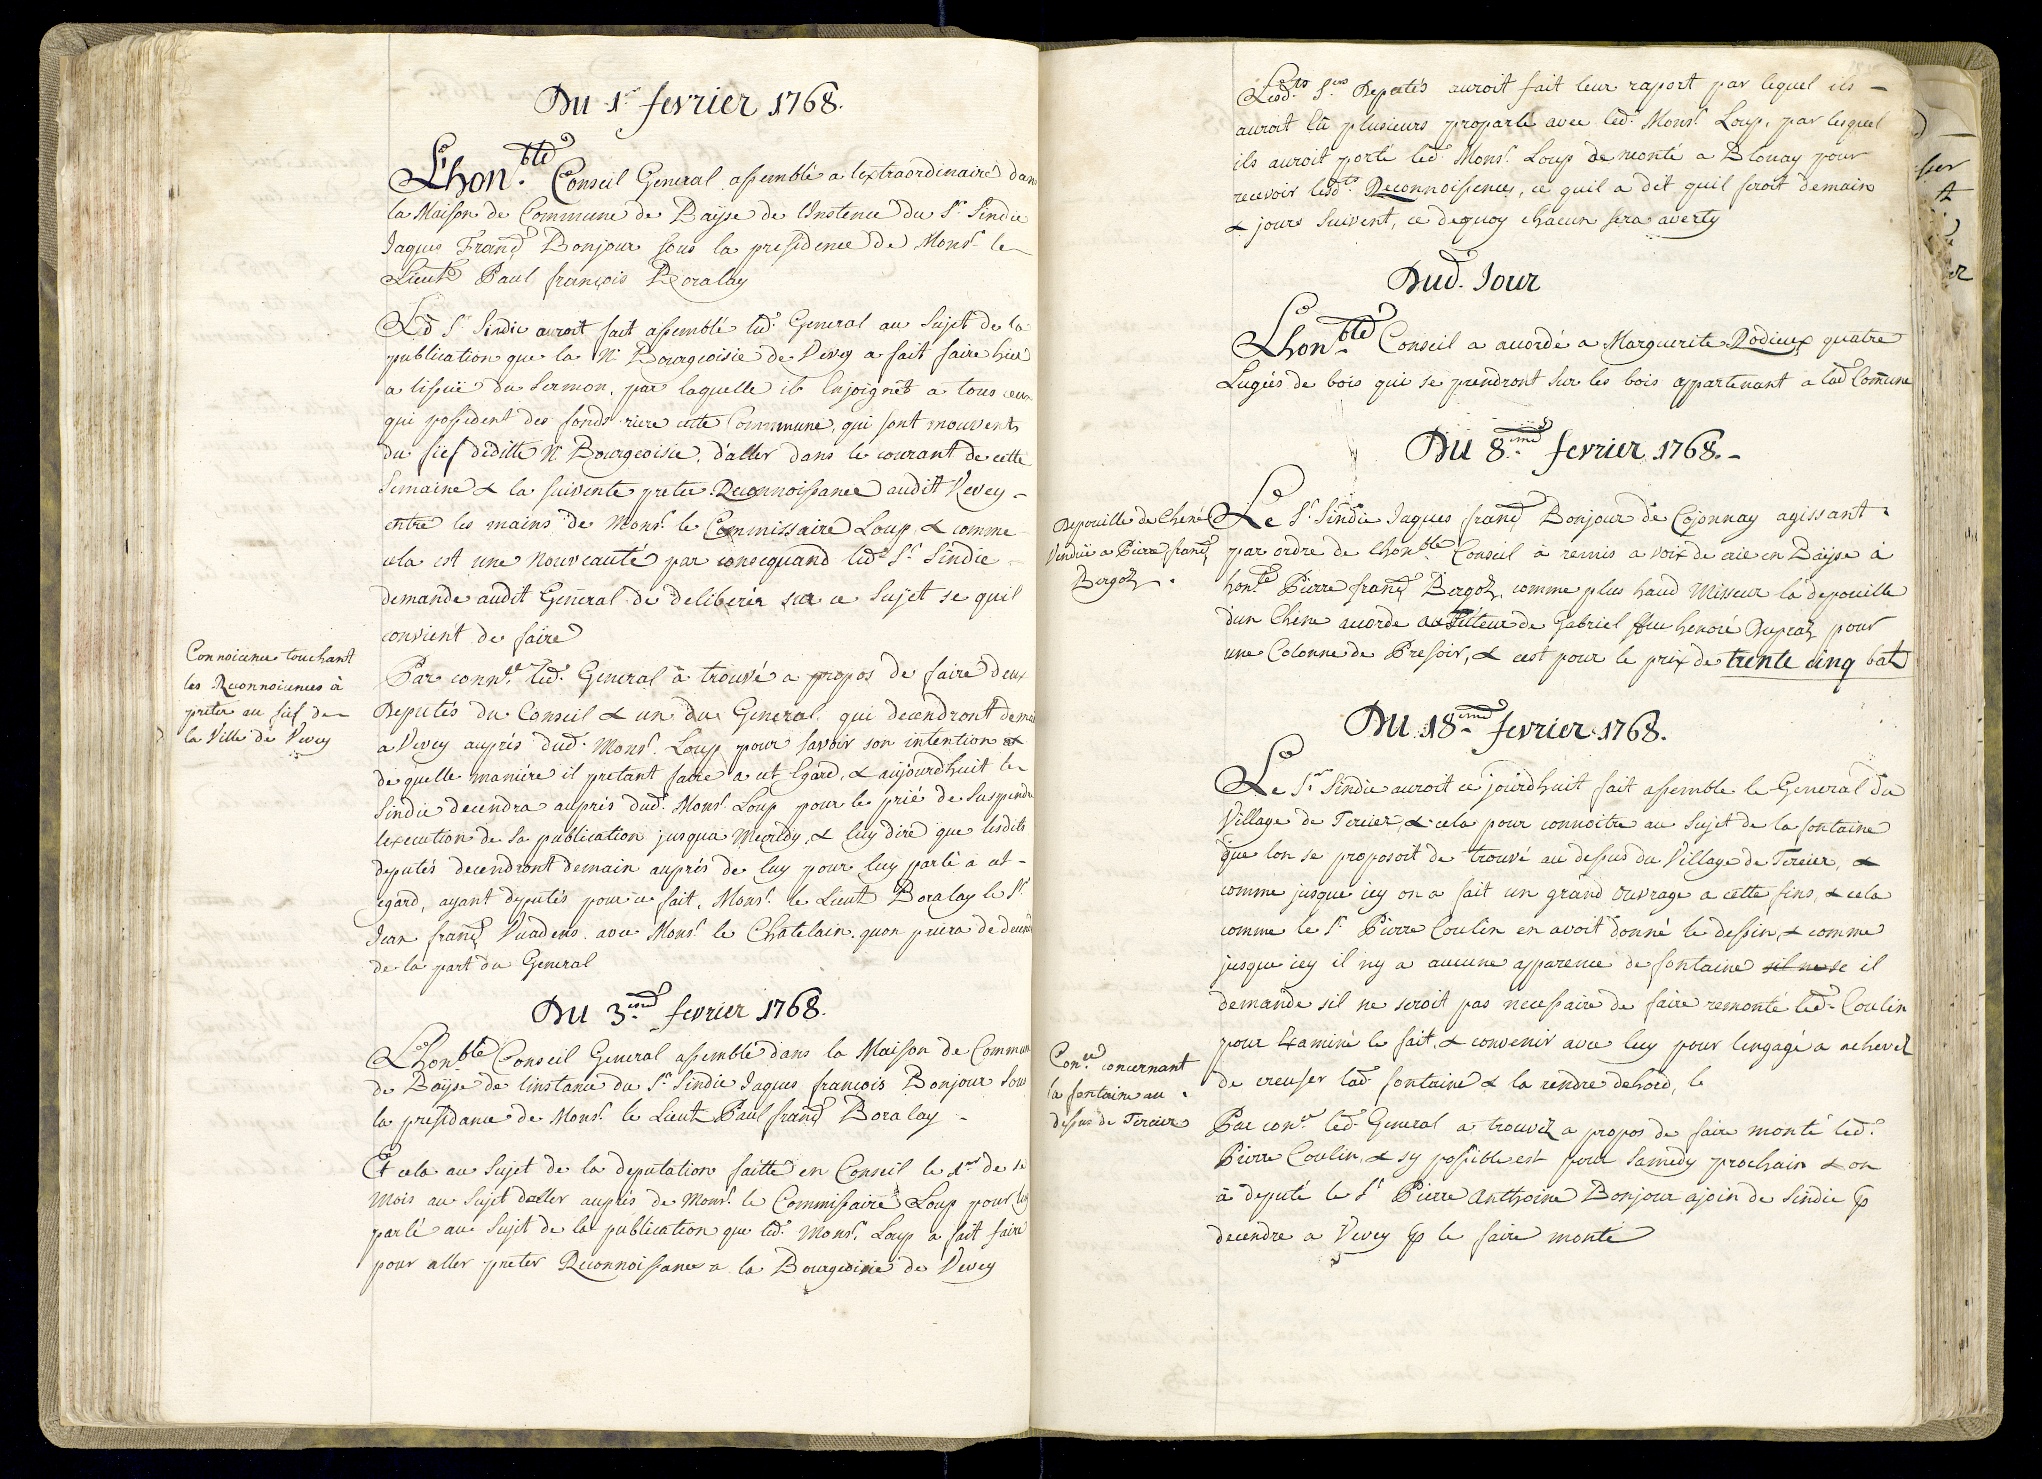 Du 1.er fevrier 1768.
L'hon.ble Conseil General assemblé a lextraordinaire dans
la Maison de Commune de Baÿse de l'Instence du S.r Sindic
Jaques Franç Bonjour sous la presidence de Mons.r le
Lieut Paul françois Boralay
Led S.r Sindic auroit fait assemblé led. General au Sujet de la
publication que la N. Bourgeoisie de Vevey a fait faire hier
a lissuë du Sermon, par laquelle ils Enjoignêt a tous ceux
qui possident des fonds riere cette Commune, qui sont mouvents
du fief deditte N. Bourgeoisie, d'aller dans le courant de cette
Semaine & la suivente preter Reconnoissance audit Vevey
entre les mains de Mons.r le Commissaire Loup, & comme
cela est une nouveauté par consequand led. S.r Sindic
demande audit General de deliberér sur ce Sujet se quil
convient de faire
Connoicence touchant
les Reconnoicences à
preter au fief de
la Ville de Vevey
Par conn.ce led. General à trouvé a propos de faire deux
Deputés du Conseil & un du General, qui decendront demain
a Vevey auprés dud. Mons.r Loup pour savoir son intention &
de quelle maniére il pretant faire a cet Egard, & aujourdhuit le
Sindic decendra auprés dud. Mons.r Loup pour le prié de Suspendre
lexecution de sa publication jusqua Mecredy, & luy dire que lesdits
deputés decendront demain auprés de luy pour luy parlé à cet
egard, ayant deputés pour ce fait, Mons.r le Lieut Boralay le S.r
Jean franç Vuadens avec Mons.r le Châtelain quon priera de decendre
de la part du General
Du 3.ême fevrier 1768.
L'hon.ble Conseil General assemblé dans la Maison de Commune
de Baÿse de linstance du S.r Sindic Jaques francois Bonjour sous
la presidance de Mons.r le Lieut Paul franç Boralay
Et cela au Sujet de la deputation faitte en Conseil le 1.er de se
Mois au Sujet daller auprés de Mons.r le Commissaire Loup pour luy
parlé au Sujet de la publication que led. Mons.r Loup a fait faire
pour aller preter Reconnoissance a la Bourgeoisie de Vevey
Lesd.ts S.rs Deputés auroit fait leur raport par lequel ils
auroit eû plusieurs proparlé avec led. Mons.r Loup, par lesquel
ils auroit porté led. Mons.r Loup de monté a Blonay pour
recevoir lesd.tes Reconnoissences, ce quil a dit quil seroit demain
& jours Suivent, ce dequoy chacun sera averty
Dud. Jour
L'hon.ble Conseil a acordé a Marguerite Dodieux quatre
Lugées de bois qui se prendront sur les bois appartenant a lad Comune
Du 8.ême fevrier 1768.
Depouille de Chene
Vendüe a Pierre franç
Bergoz
Le S.r Sindic Jaques franç Bonjour de Cojonnay agissant
par ordre de lhon.ble Conseil à remis a voix de crie en Baÿse à
hon.te Pierre franç Bergoz, comme plus haud Miseur la depouille
dun Chene acorde au Tuteur de Gabriel feu henoré Dupraz pour
une Colonne de Presoir, & cest pour le prix de trente cinq batz
Du 18.ême fevrier 1768.
Le S.r Sindic auroit ce jourdhuit fait assemble le General du
Village de Tercier, & cela pour connoitre au Sujet de la fontaine
que lon se proposoit de trouvé au dessus du Village de Tercier, &
comme jusque icy on a fait un grand ouvrage a cette fins, & cela
comme le S.r Pierre Coulin en avoit donné le dessin, & comme
jusque icy il ny a aucune apparence de fontaine sil ne se il
demande sil ne seroit pas necessaire de faire remonté led. Coulin
pour Examiné le fait, & convenir avec luy pour lengagé a achever
de creuser lad. fontaine & la rendre dehord, le
Con.ce concernant
la fontaine au
dessus de Tercier
Par con.ce led. General a trouvez a propos de faire monté led.
Pierre Coulin, & sy possible est pour Samedy prochain & on
à deputé le S.r Pierre Anthoine Bonjour ajoin de Sindic p
decendre a Vevey p le faire monté